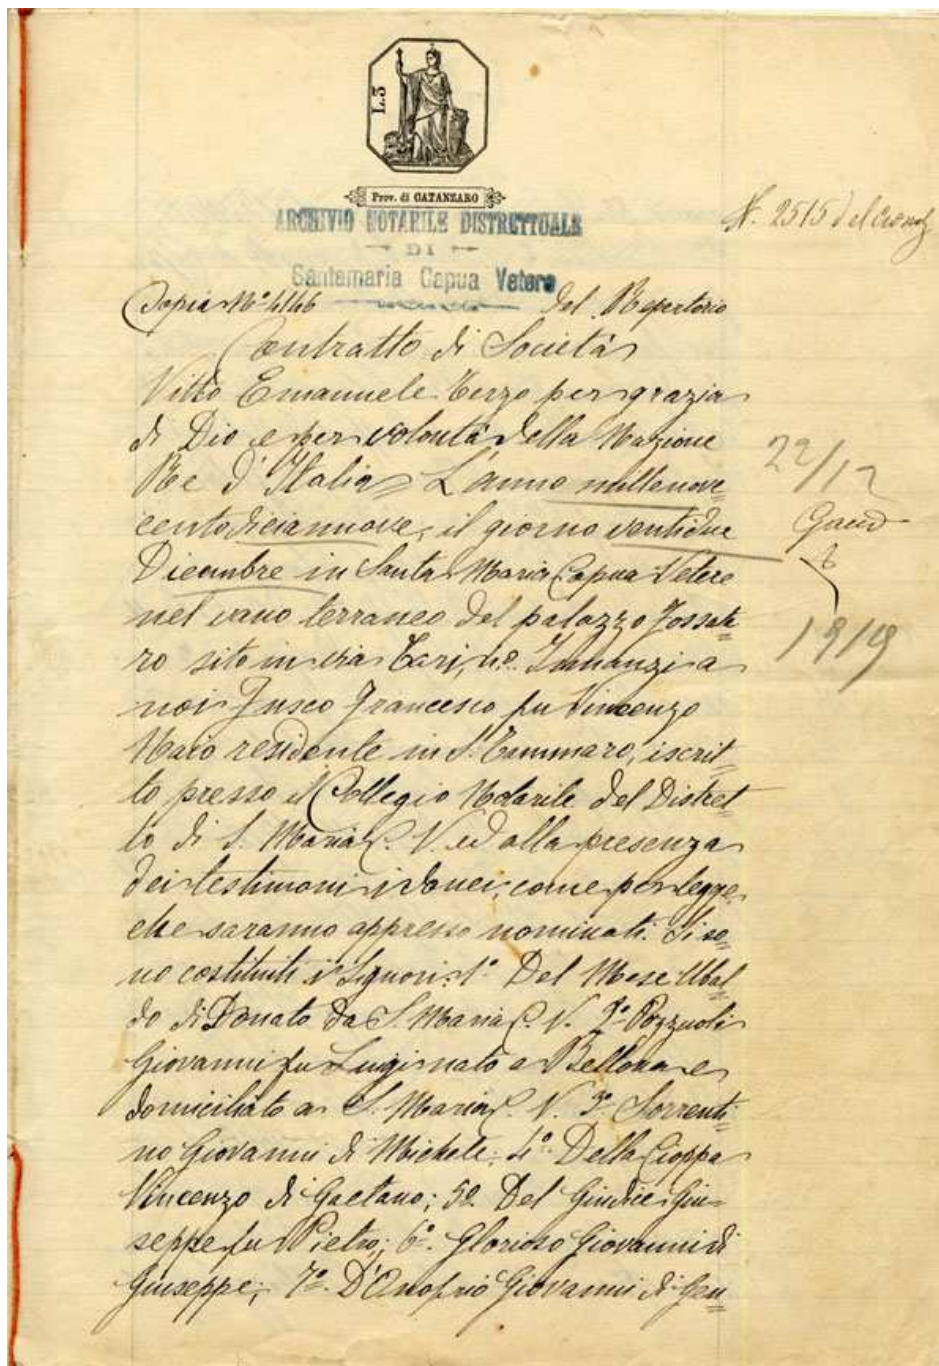 L.3
Prov. di CATANZARO
ARCHIVIO NOTARILE DISTRETTUALE
DI
Santamaria Capua Vetere
N. 2515 del
Copia No 4146 del Repertorio
Contratto di Società
Vitto Emanuele Terzo per grazia
di Dio e per volontà della Nazione
Re d'Italia L'anno millenove
centodiciannove, il giorno ventidue
22/12
Dicembre in Santa Maria Capua Vetere
nel vano terraneo del palazzo Fossata
1919
ro sito in via Innanzi a
noi Fusco Francesco fu Vincenzo
residente in S. Tammaro, iscrit
to presso il Collegio Notarile del Distret
to di S. Maria C. V. ed alla presenza
dei testimoni idonei, come per legge,
che saranno appresso nominati. Si so
no costituiti i Signori: 1o Del Mese Ubal
do di Donato da S. Maria C. V. 2o Pozzuoli
Giovanni fu Luigi nato a Bellona e
domiciliato a S. Maria C. V. 3o Sorrenti
no Giovanni di Michele; 4o Della Cioppa
Vincenzo di Gaetano; 5o Del Giudice Giu
seppe fu Pietro; 6o Glorioso Giovanni di
Giuseppe; 7o D'Onofrio Giovanni di Gen